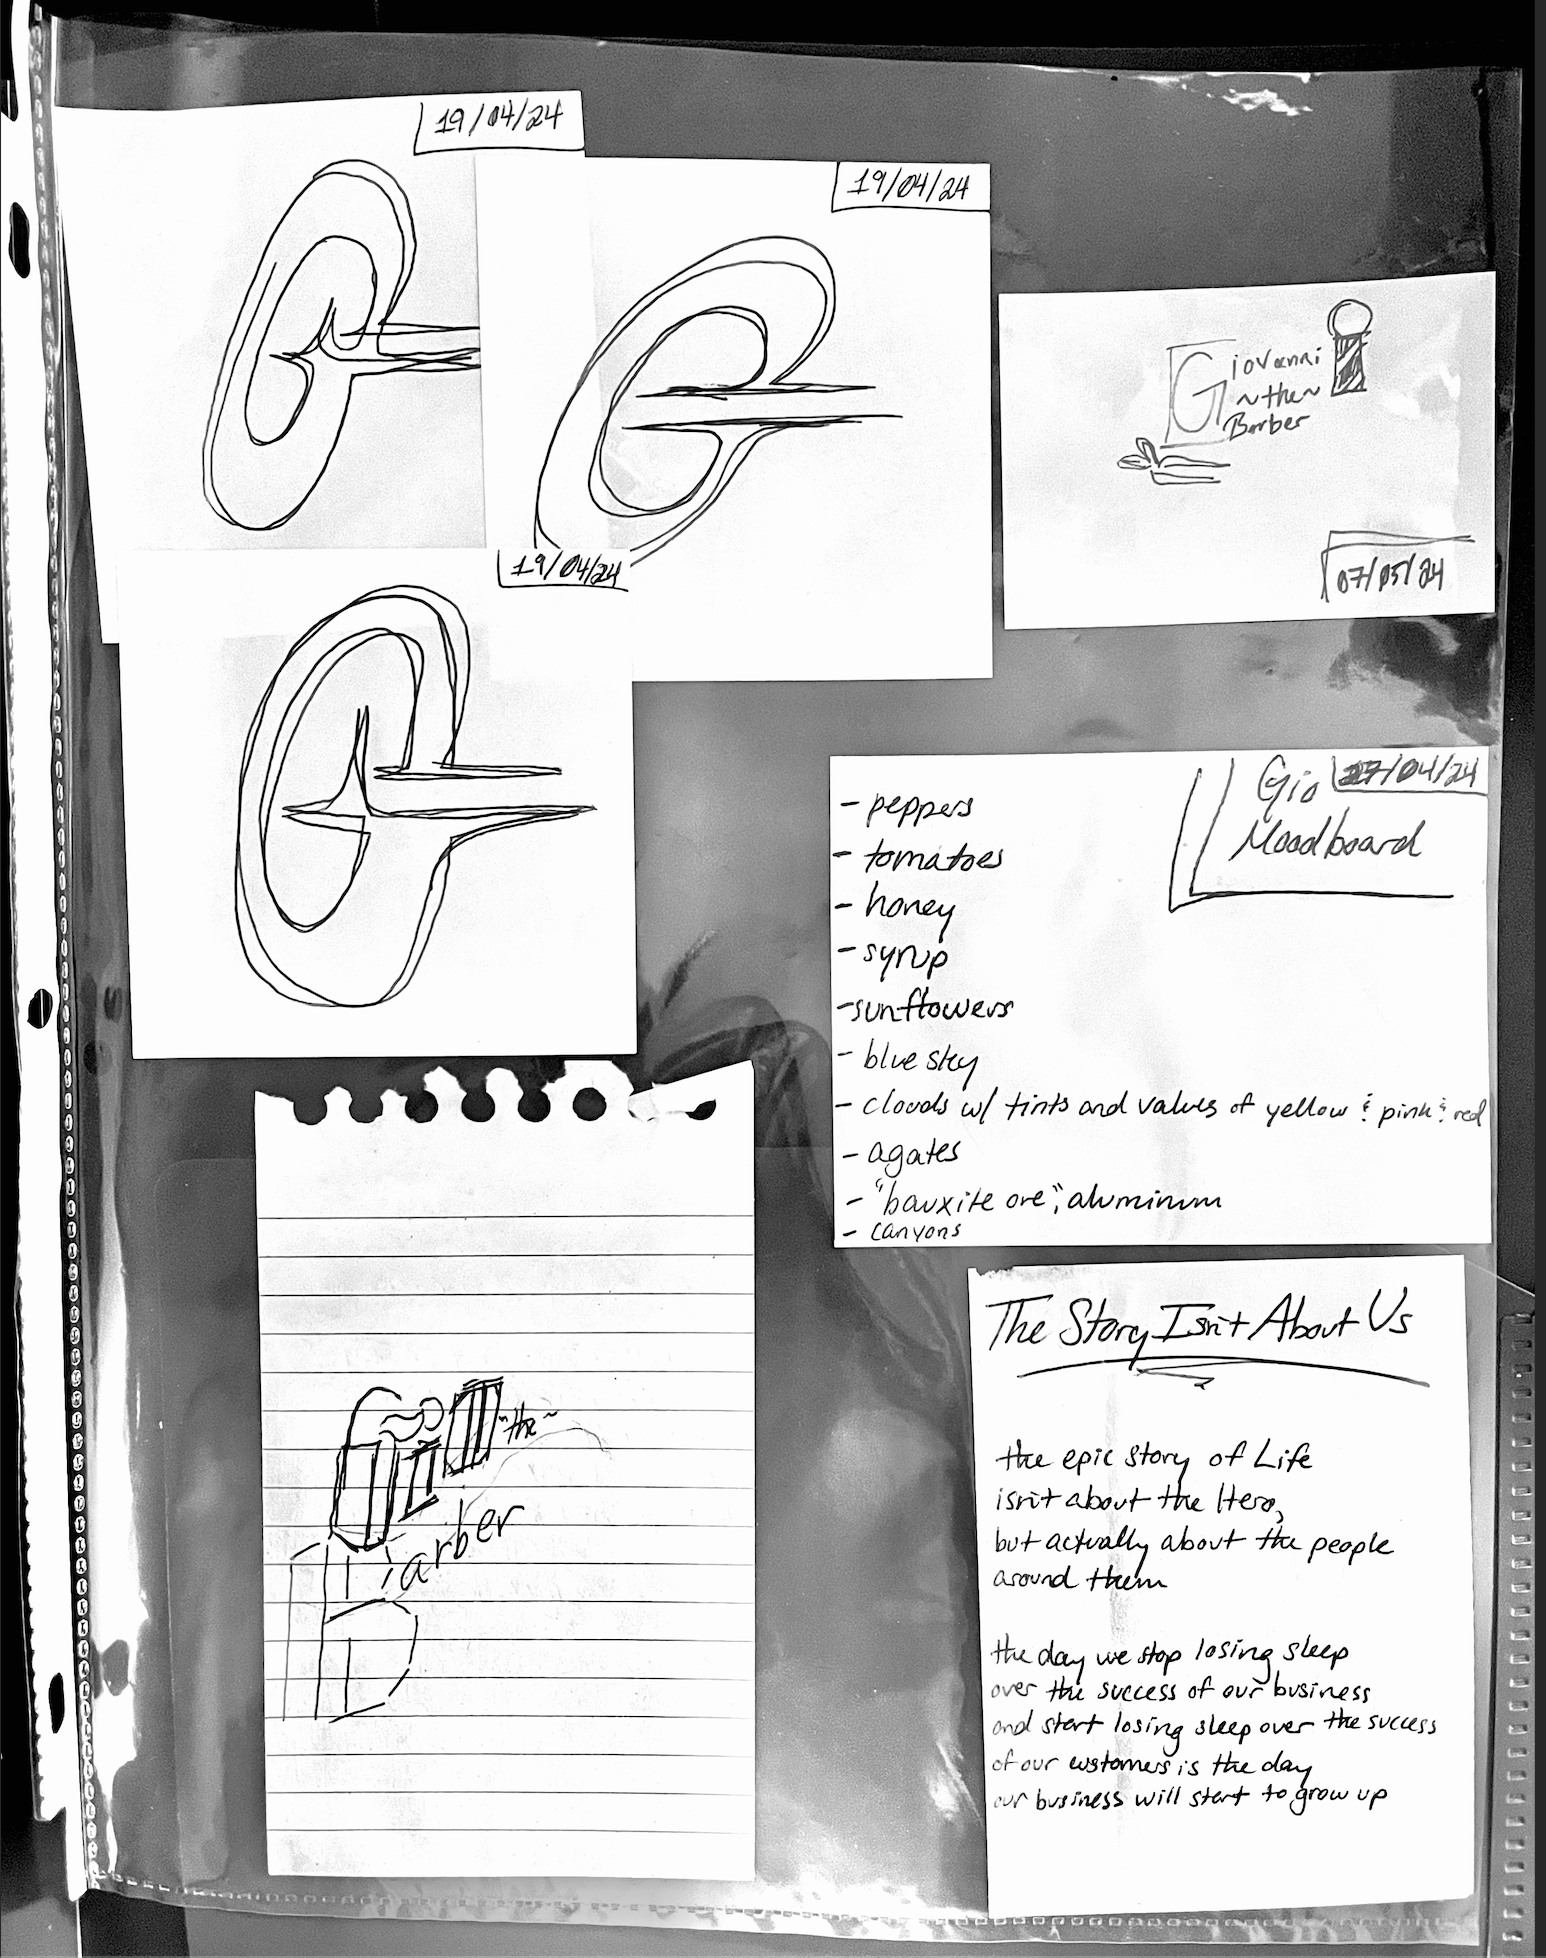 19/04/24
19/04/24
Giovanni
~the~
Barber
07/05/24
19/04/24
Gio
27/04/24
Moodboard
- peppers
- tomatoes
- honey
- syrup
- sunflowers
- blue sky
- clouds w/ tints and values of yellow & pink & red
- agates
- "bauxite ore", aluminum
- canyons
~the~
Barber
The Story Isn't About Us
the epic story of Life
isn't about the Hero,
but actually about the people
around them
the day we stop losing sleep
over the success of our business
and start losing sleep over the success
of our customers is the day
our business will start to grow up